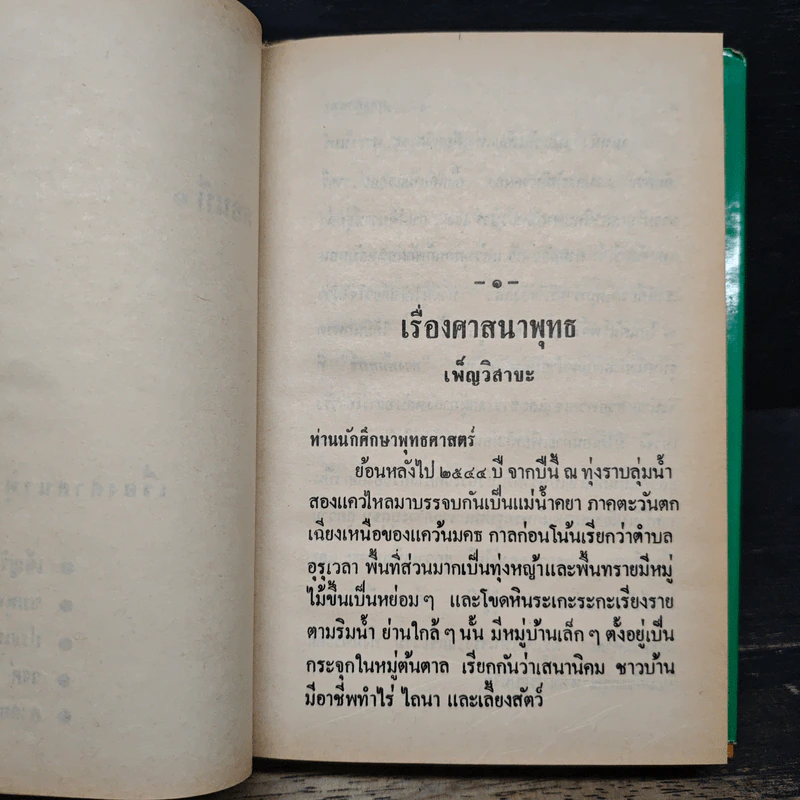 ตอนที่ ๑
– ๑ –
เรื่องศาสนาพุทธ
เพ็ญวิสาขะ
ท่านนักศึกษาพุทธศาสตร์
ย้อนหลังไป ๒๕๔๔ ปี จากปีนี้ ณ ทุ่งราบลุ่มน้ำ
สองแควไหลมาบรรจบกันเป็นแม่น้ำคยา ภาคตะวันตก
เฉียงเหนือของแคว้นมคธ กาลก่อนโน้นเรียกว่าตำบล
อุรุเวลา พื้นที่ส่วนมากเป็นทุ่งหญ้าและพื้นทรายมีหมู่
ไม้ขึ้นเป็นหย่อมๆ และโขดหินระเกะระกะเรียงราย
ตามริมน้ำ ย่านใกล้ๆ นั้น มีหมู่บ้านเล็กๆ ตั้งอยู่เป็น
กระจุกในหมู่ต้นตาล เรียกกันว่าเสนานิคม ชาวบ้าน
มีอาชีพทำไร่ ไถนา และเลี้ยงสัตว์